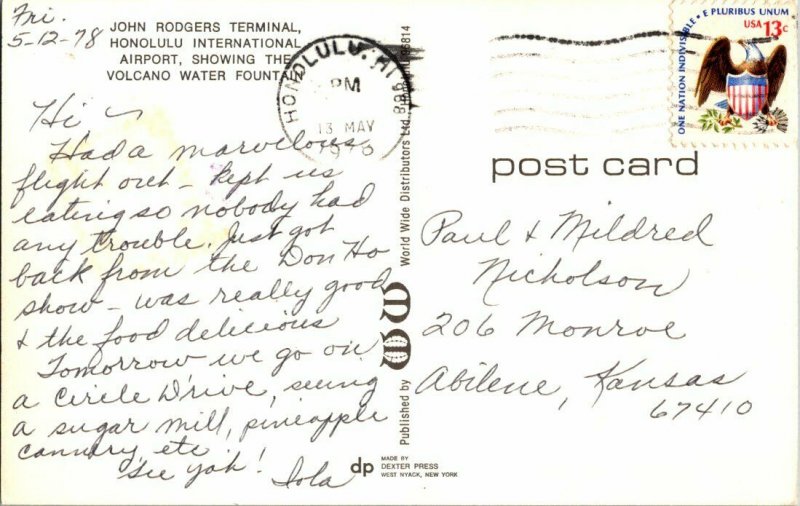 Fri.
5-12-78
JOHN RODGERS TERMINAL,
HONOLULU INTERNATIONAL
AIRPORT, SHOWING THE
VOLCANO WATER FOUNTAIN
Hi ~
Had a marvelous
flight out - kept us
eating so nobody had
any trouble. Just got
back from the Don Ho
show - was really good
& the food delicious
Tomorrow we go on
a Circle Drive, seeing
a sugar mill, pineapple
cannery, etc
See yah!
Iola
HONOLULU, HI
PM
13 MAY
Published by WW World Wide Distributors Ltd.
dp
MADE BY
DEXTER PRESS
WEST NYACK, NEW YORK
ONE NATION INDIVISIBLE • E PLURIBUS UNUM
USA 13c
post card
Paul & Mildred
Nicholson
206 Monroe
Abilene, Kansas
67410